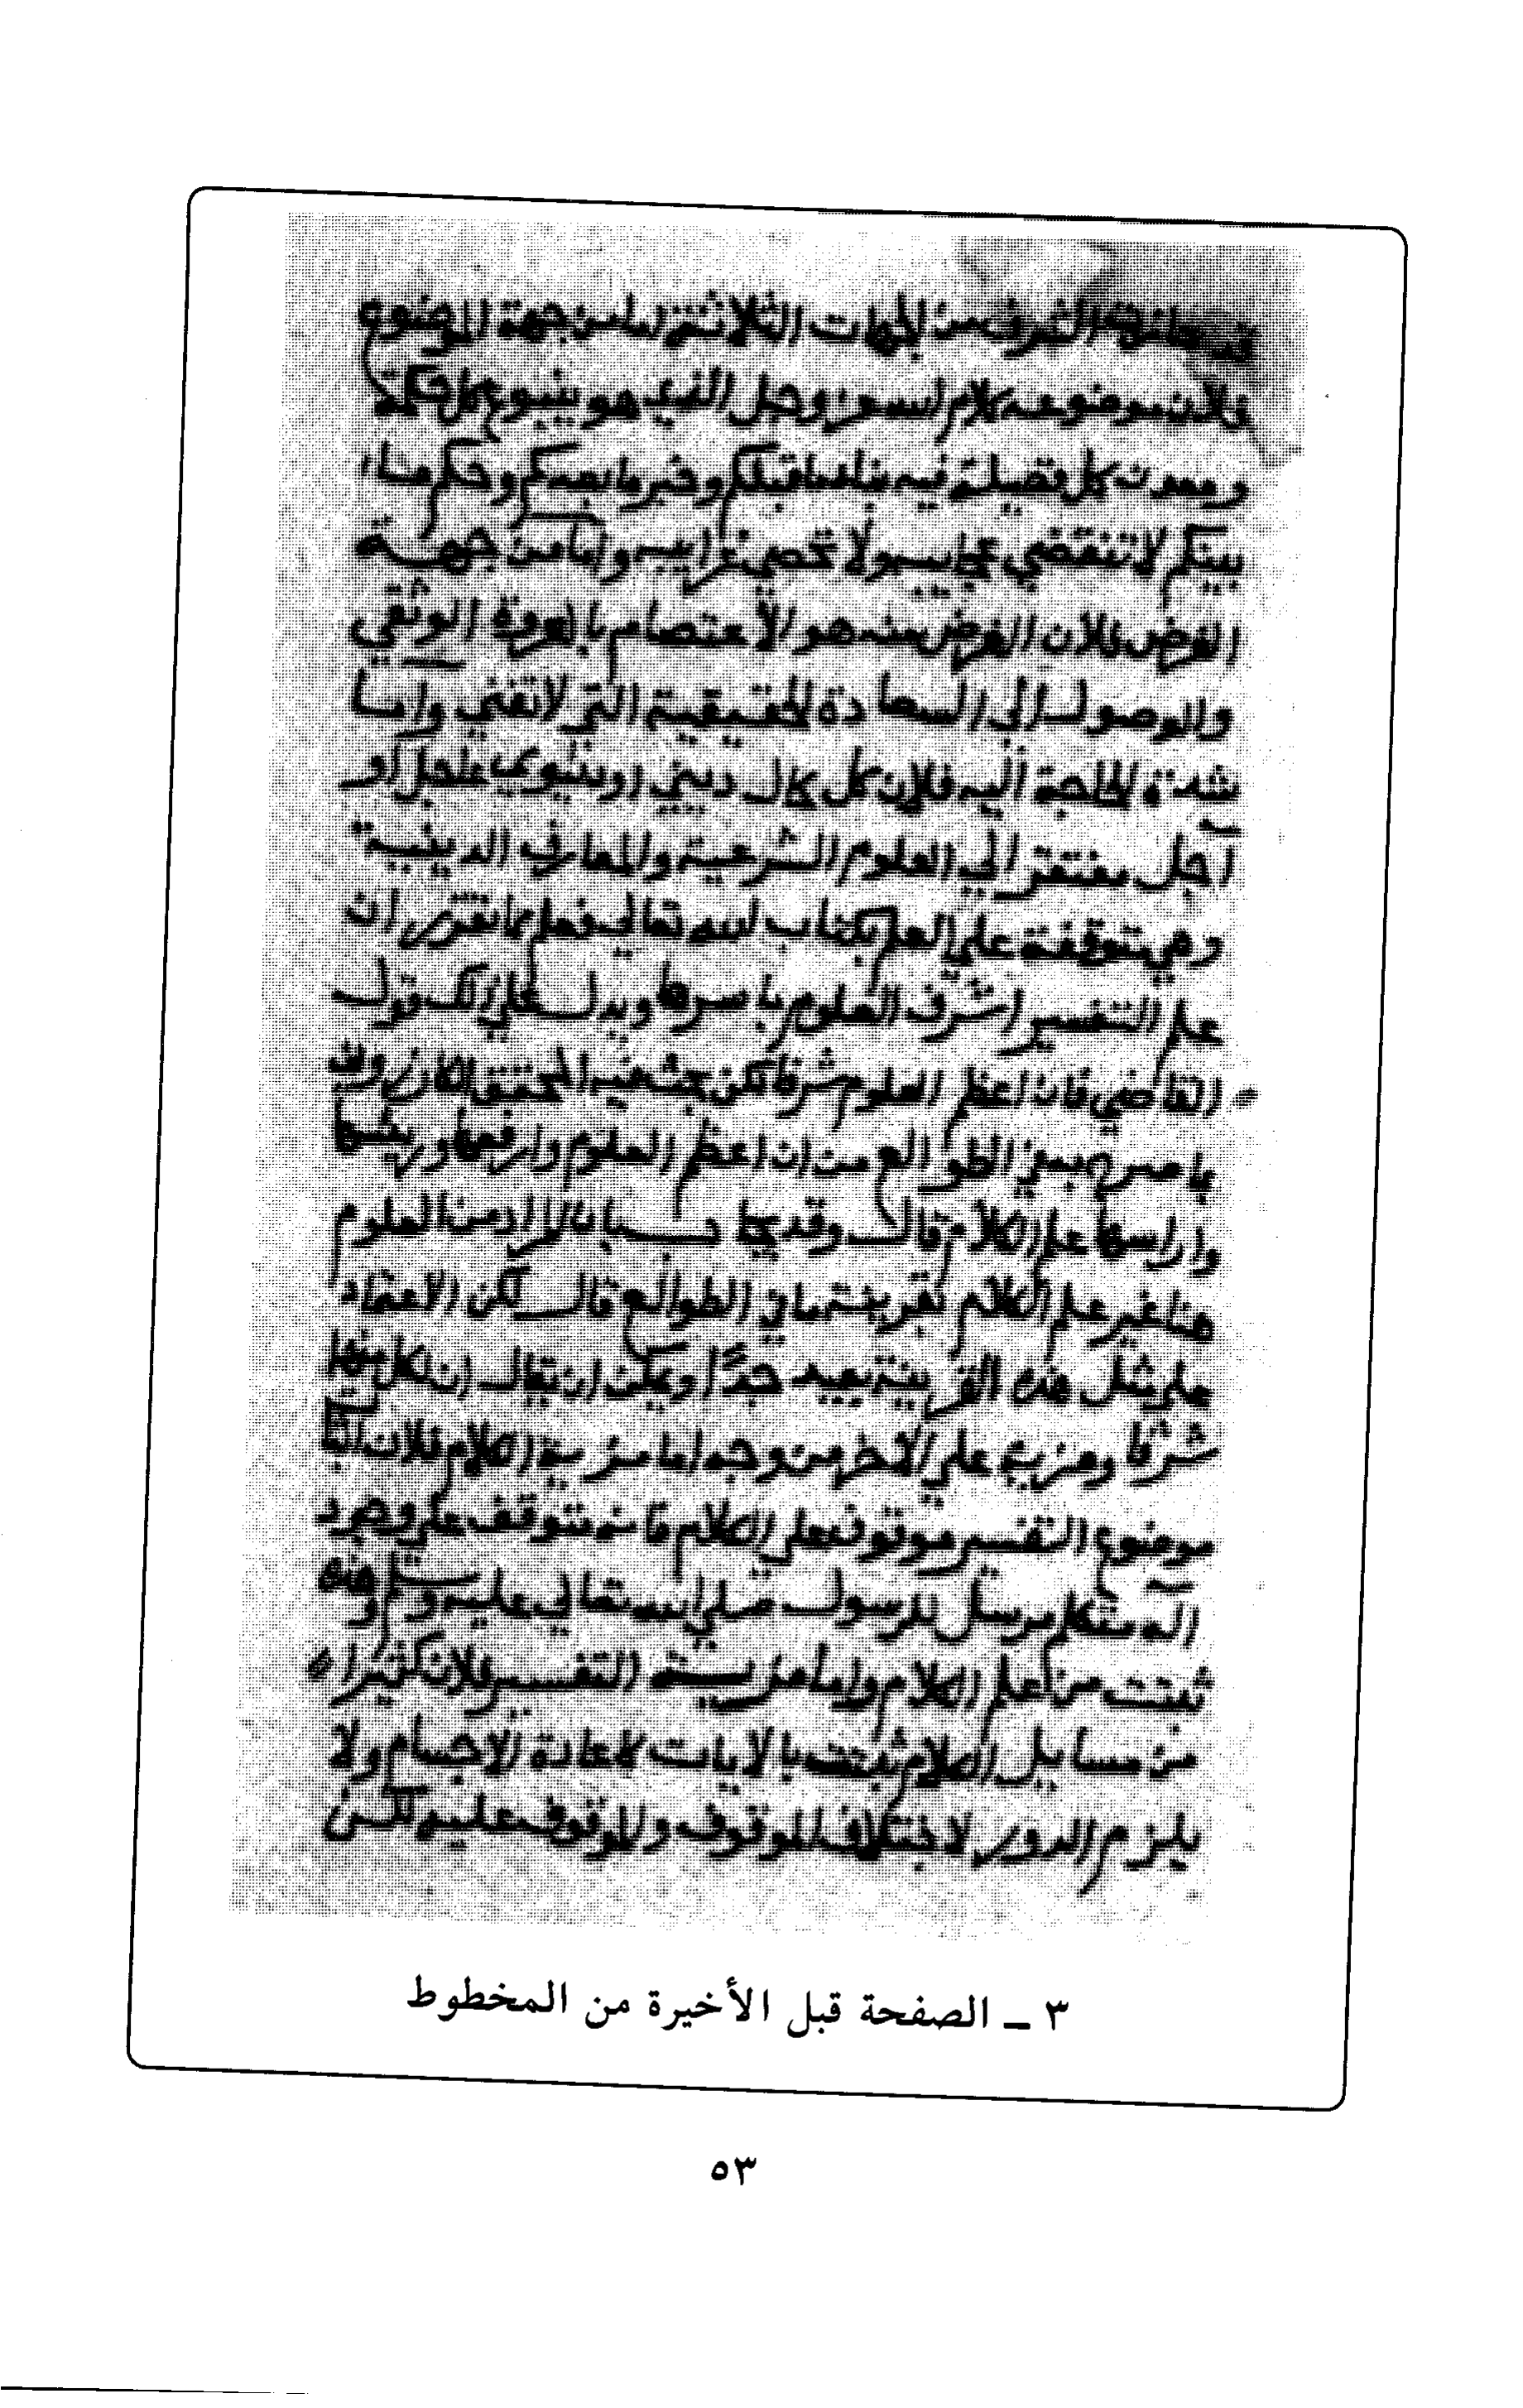 قد حاز الشرف من الجهات الثلاثة اما من جهة الموضوع
فلان موضوعه كلام الله عز وجل الذي هو ينبوع كل حكمة
ومعدن كل فضيلة فيه نبا ما قبلكم وخبر ما بعدكم وحكم ما
بينكم لا تنقضي عجايبه ولا تحصي غرايبه واما من جهة
الغرض فلان الغرض منه هو الاعتصام بالعروة الوثقي
والوصول الي السعادة الحقيقية التي لا تفني واما
شدة الحاجة اليه فلان كل كمال ديني او دنيوي عاجل او
آجل مفتقر الي العلوم الشرعية والمعارف الدينية
وهي متوقفة علي العلم بكتاب الله تعالي فعلم مما تقرر ان
علم التفسير اشرف العلوم باسرها ويدل علي ذلك قول
القاضي فان اعظم العلوم شرفا لكن بحث فيه المحقق الكازروني
بما صرح به في الطوالع من ان اعظم العلوم وارفعها
علم الكلام قال وقد يجاب بان المراد من العلوم
هنا غير علم الكلام بقرينة ما في الطوالع قال لكن الاعتماد
علي مثل هذه القرينة بعيد جدًا ويمكن ان يقال ان لكل منهما
شرفا ومزية علي الاخر من وجه اما مزية الكلام فلان اثبات
موضوع التفسير موقوف علي الكلام فانه متوقف علي وجود
اله متكلم مرسل للرسول صلي الله تعالي عليه وسلم وهذه
ثبتت من علم الكلام واما مزية التفسير فلان كثيرا
من مسايل الكلام ثبتت بالايات كاعادة الاجسام ولا
يلزم الدور لاختلاف الموقوف والموقوف عليه لكن
٣ ــ الصفحة قبل الأخيرة من المخطوط
٥٣